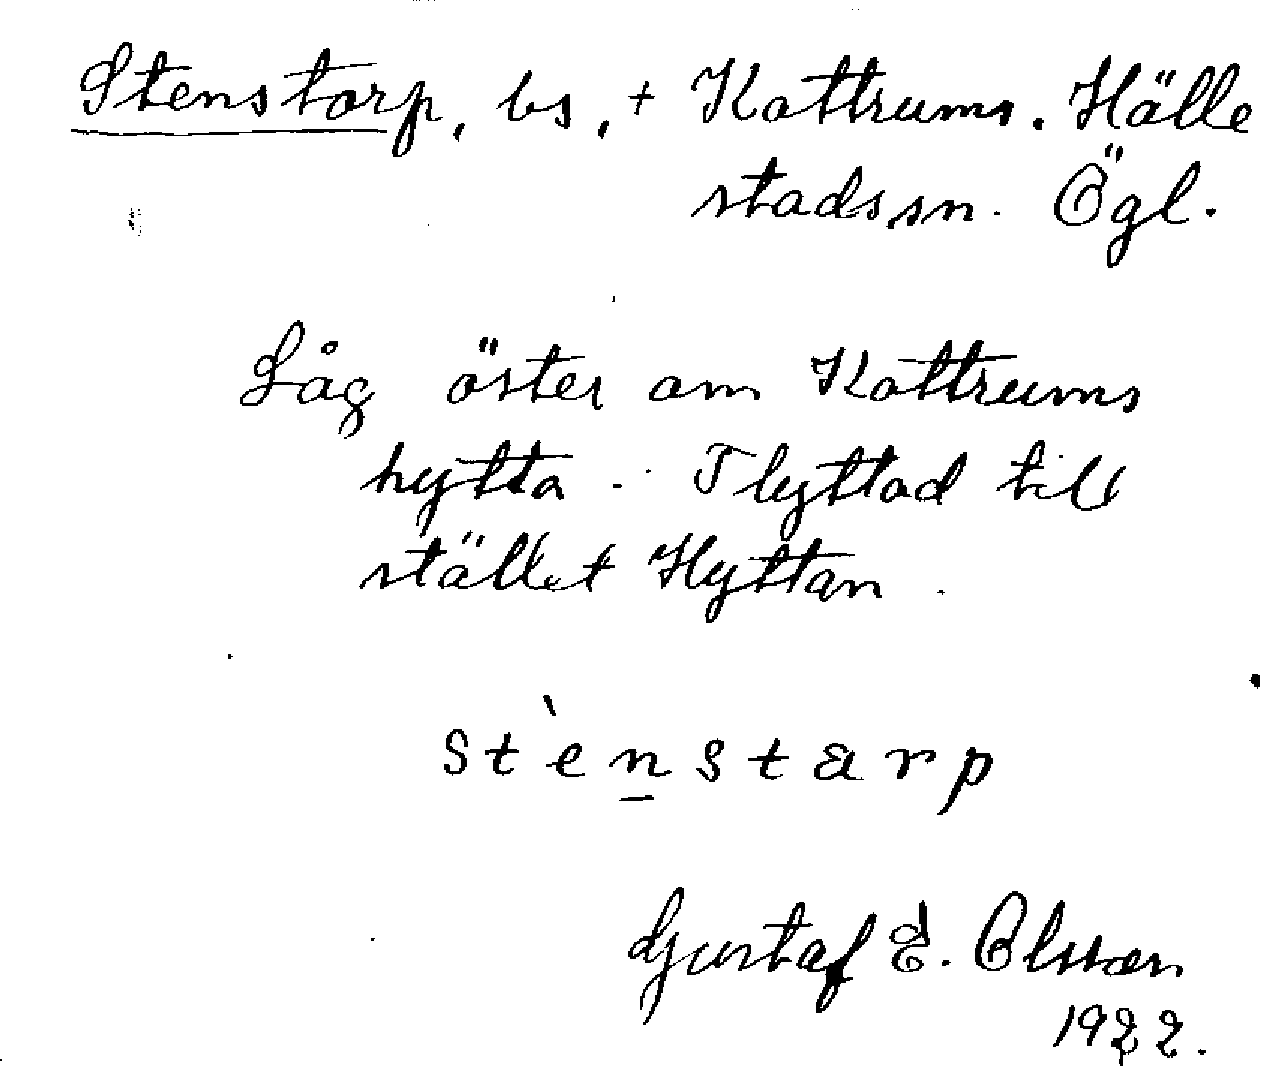 Stenstorp, bs, + Kottrums. Hälle
stads sn. Ögl.
Låg öster om Kottrums
hytta. Flyttad till
stället Hyttan.
st`enstarp
Gustaf E. Olsson
1922.